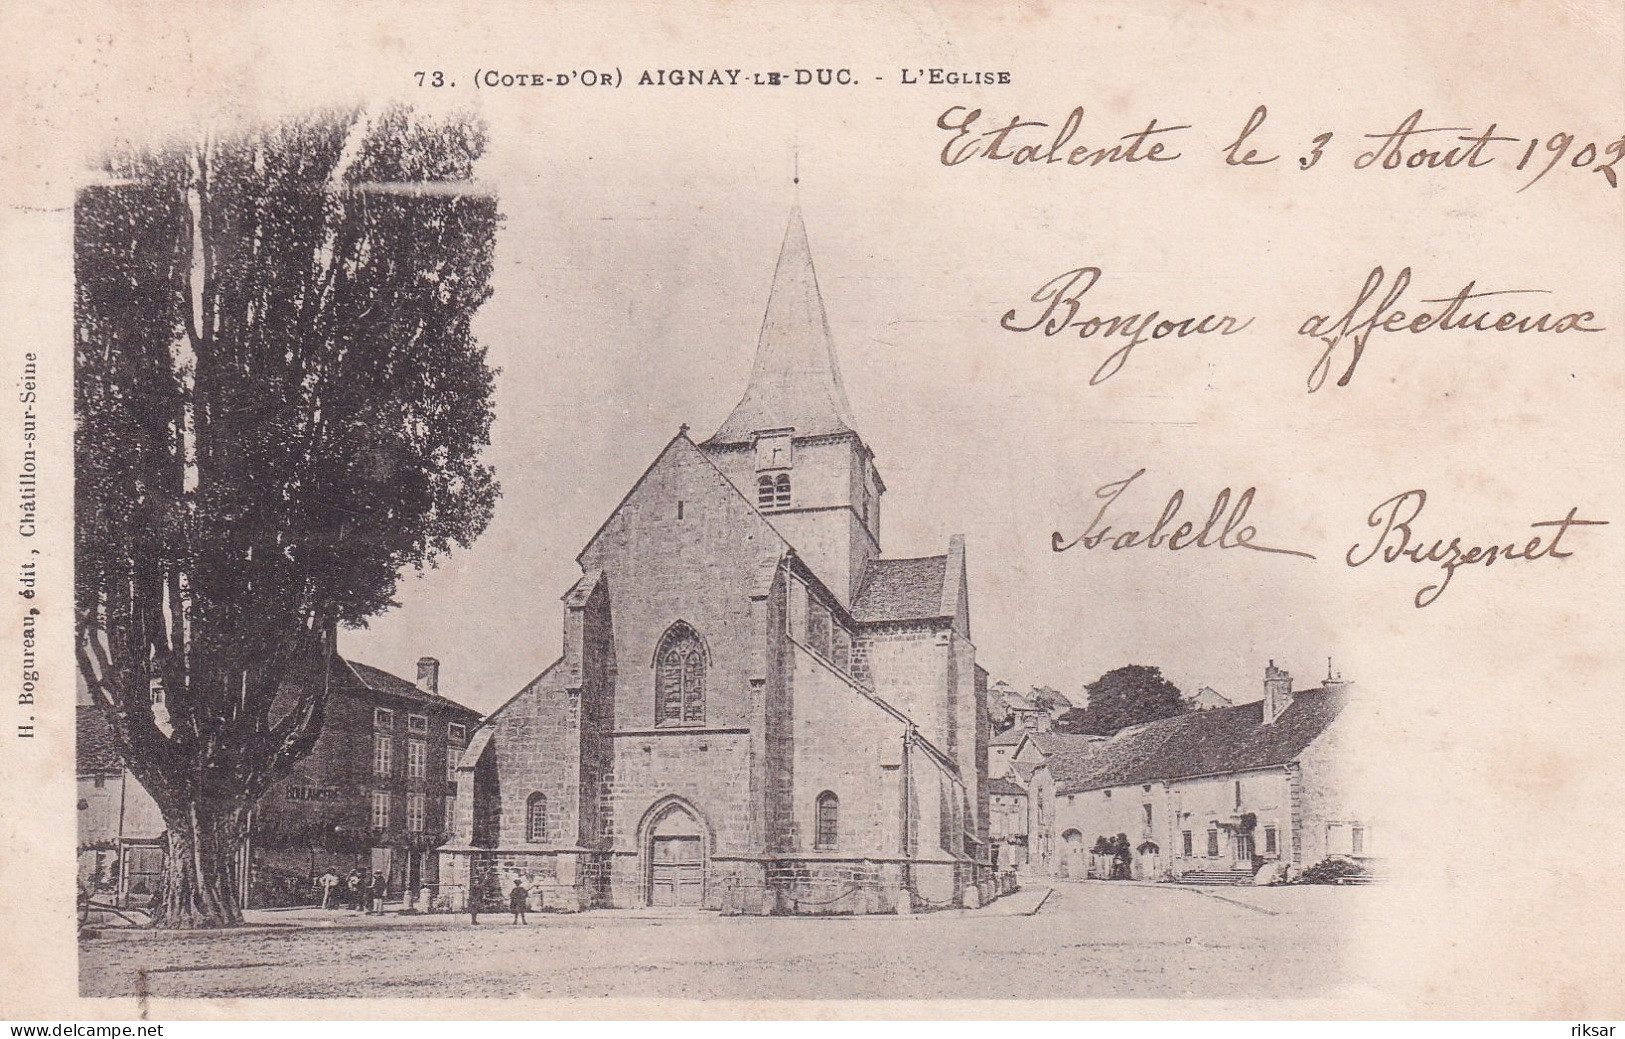 73. (COTE-D'OR) AIGNAY-LE-DUC. - L'EGLISE
Etalente le 3 Aout 1902
Bonjour affectueux
Isabelle Buzenet
H. Bogureau, édit., Châtillon-sur-Seine
BOULANGERIE
www.delcampe.net
riksar